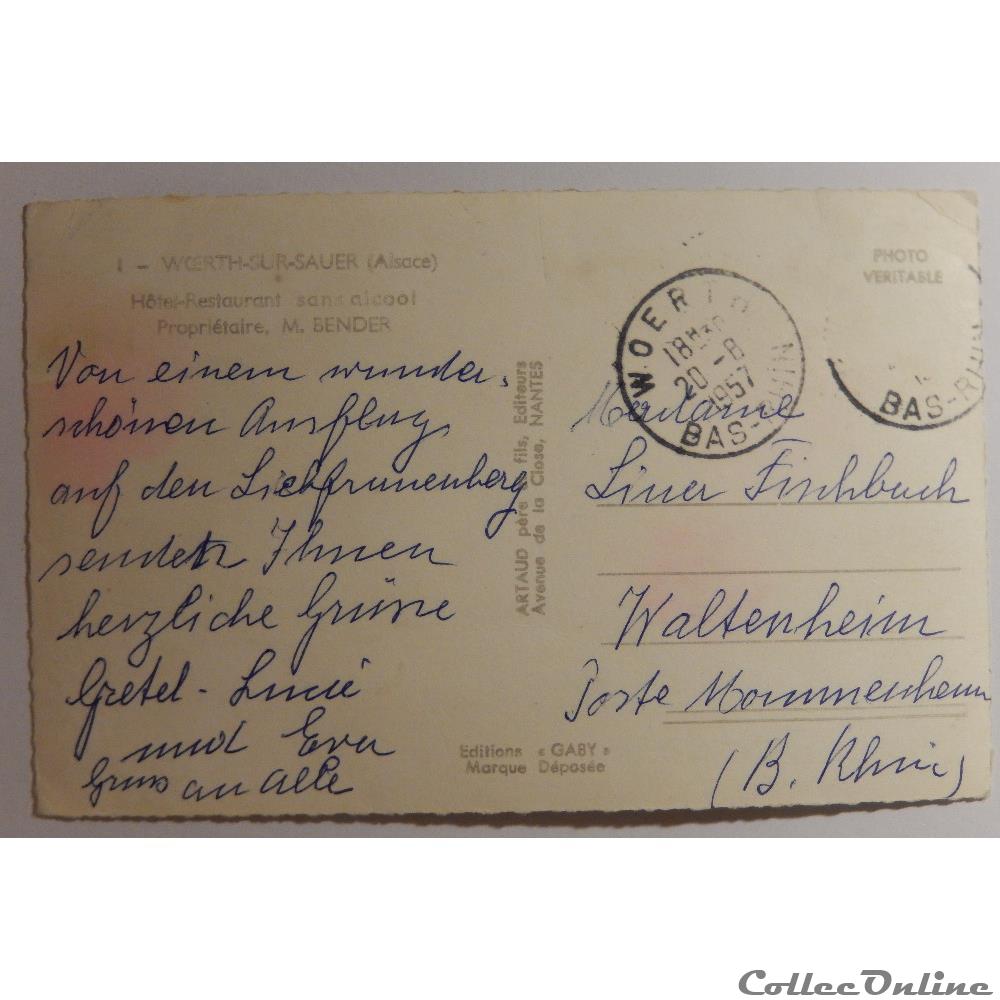 1 - WŒRTH-SUR-SAUER (Alsace)
Hôtel-Restaurant sans alcool
Propriétaire, M. BENDER
Von einem wunder-
schönen Ausflug
auf den
senden Ihnen
herzliche Grüsse
Gretel - Lucie
und Eva
Gruss an alle
ARTAUD père et fils, Editeurs
Avenue de la Close, NANTES
Editions « GABY »
Marque Déposée
PHOTO
VERITABLE
WOERTH
18H30
20 -8
1957
BAS-RHIN
BAS-RHIN
Madame
Fischbach
Waltenheim
Poste Mommenheim
(B. Rhin)
CollecOnline